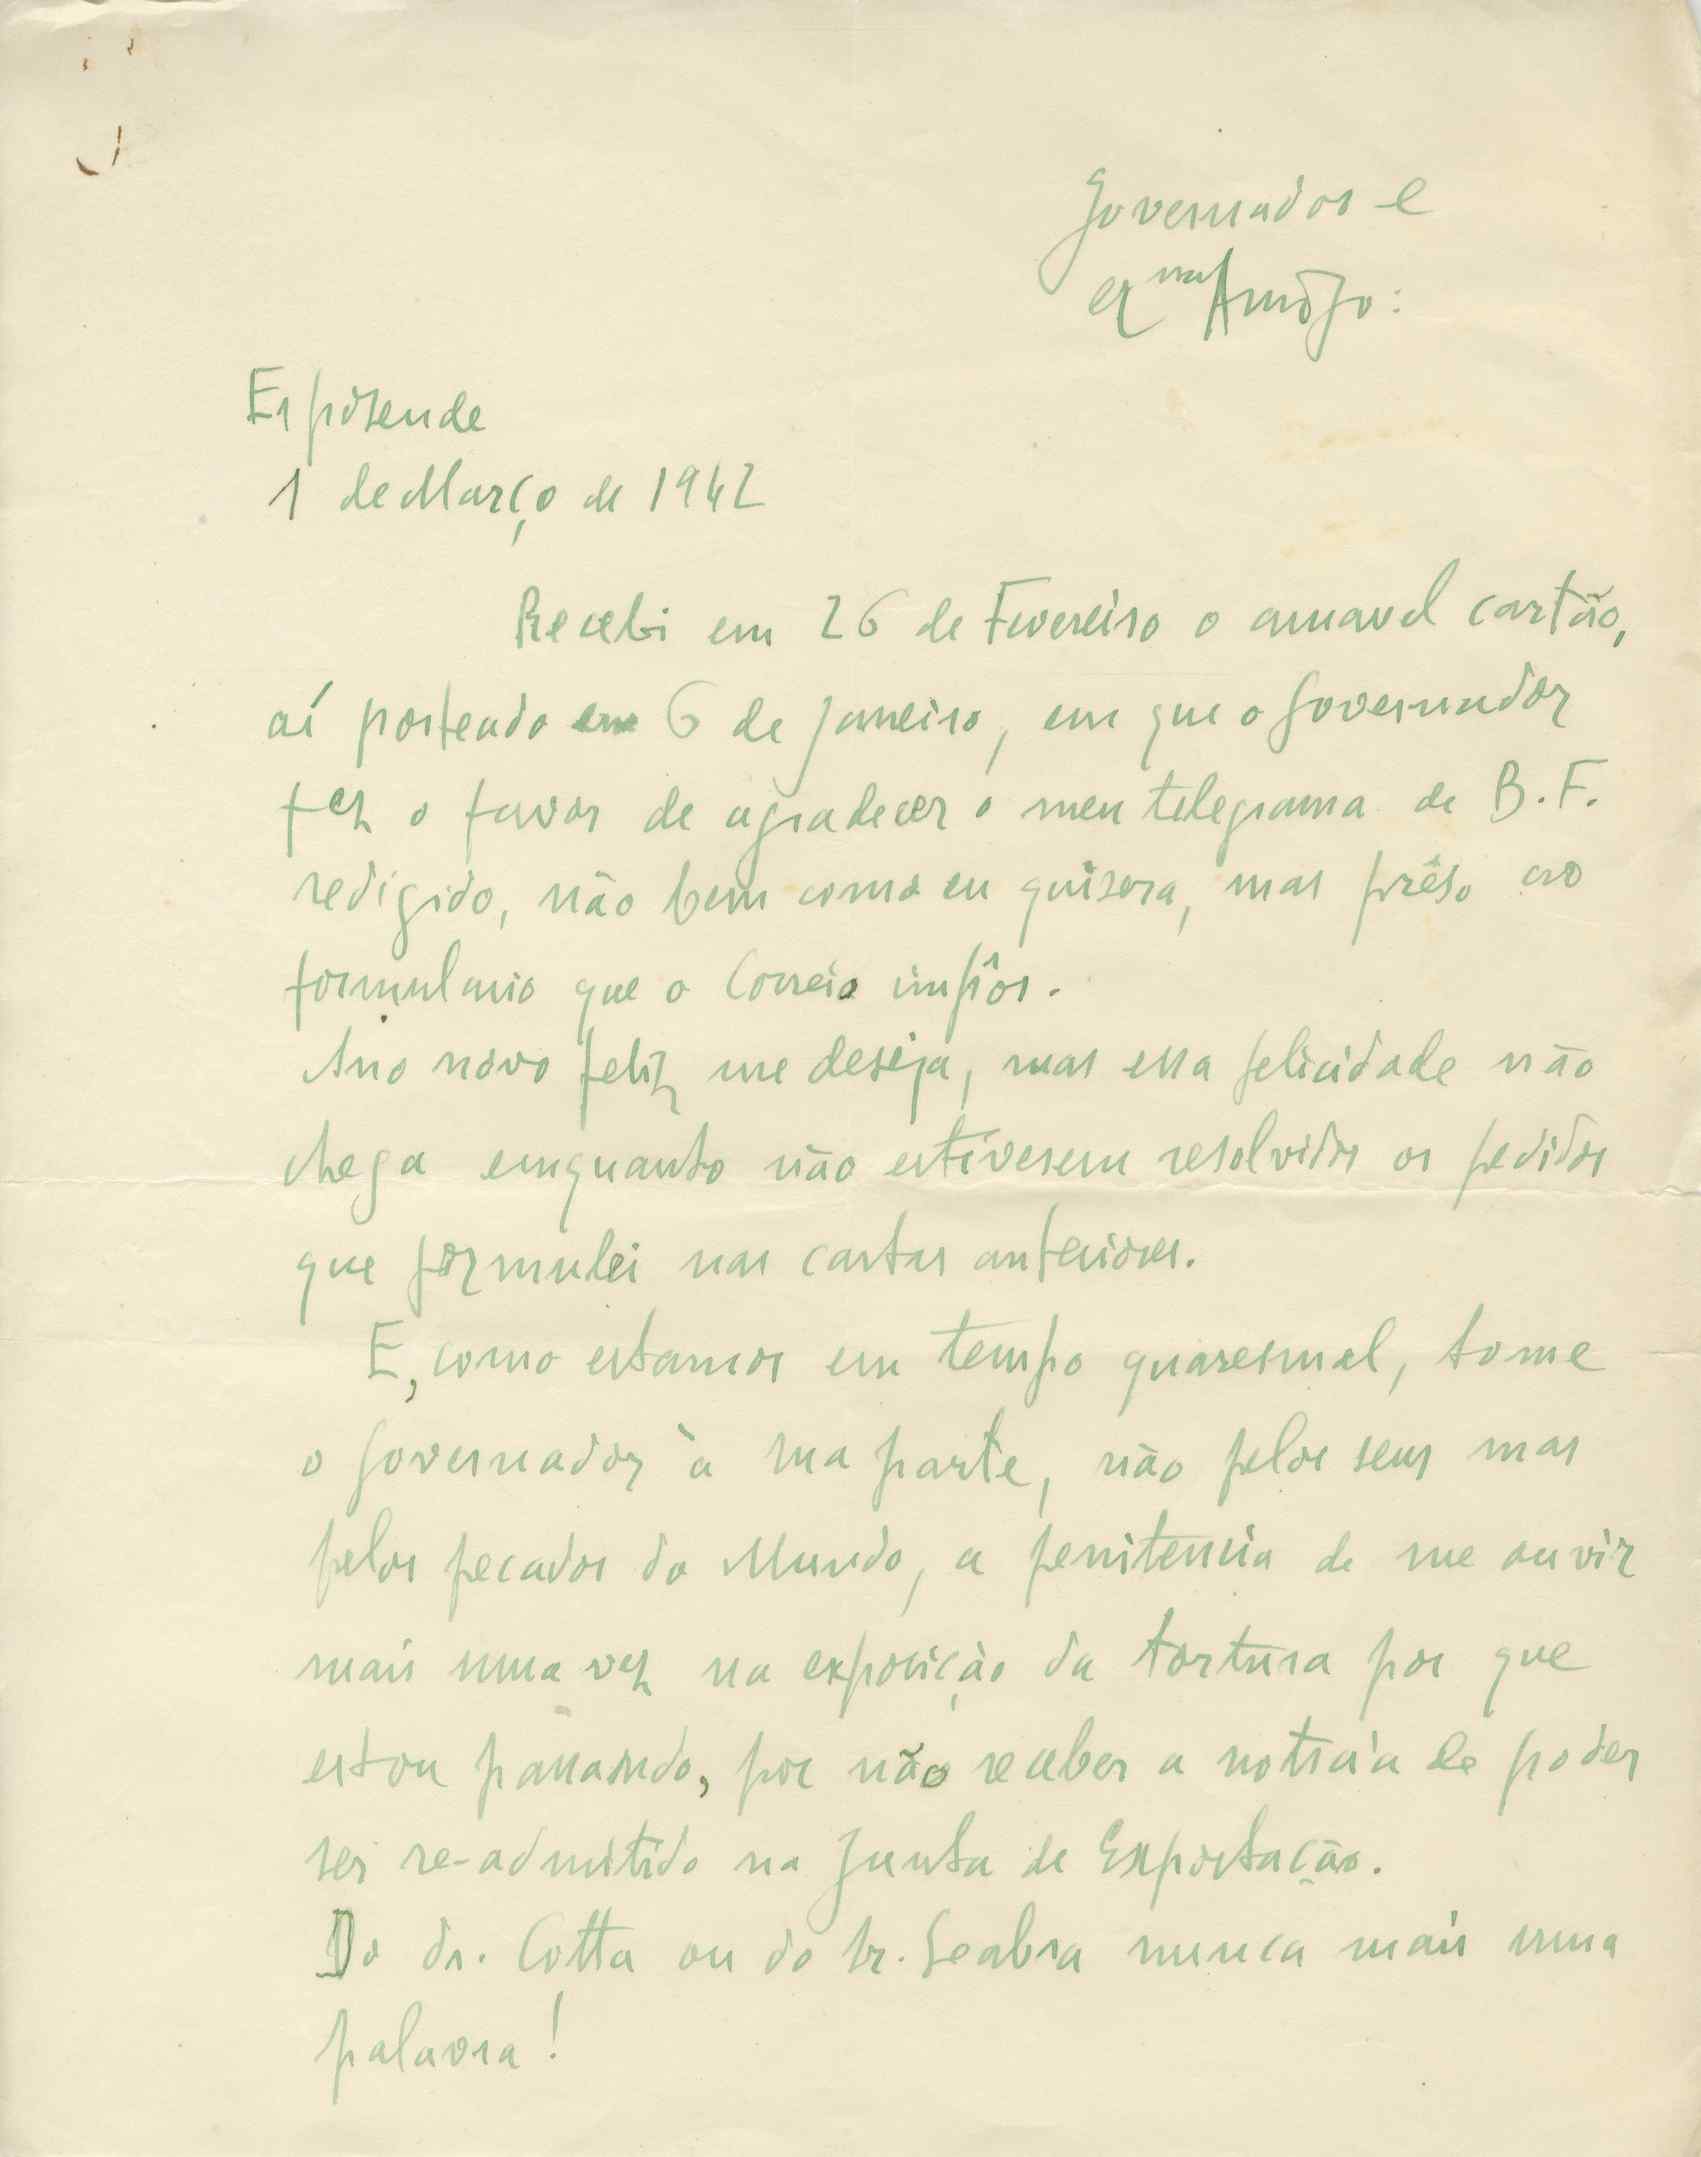 Governador e
Exmo Amigo:
Espòsende
1 de Março de 1942
Recebi em 26 de Fevereiro o amavel cartão,
aí posteado em 6 de Janeiro, em que o Governador
fez o favor de agradecer o meu telegrama de B. F.
redigido, não bem como eu quisera, mas prêso ao
formulario que o Correio impôs.
Ano novo feliz me deseja, mas essa felicidade não
chega emquanto não estiverem resolvidos os pedidos
que formulei nas cartas anteriores.
E, como estamos em tempo quaresmal, tome
o Governador à sua parte, não pelos seus mas
pelos pecados do Mundo, a penitencia de me ouvir
mais uma vez na exposição da tortura por que
estou passando, por não receber a noticia de poder
ser re-admitido na Junta de Exportação.
Do dr. Cotta ou do sr. Seabra nunca mais uma
palavra!